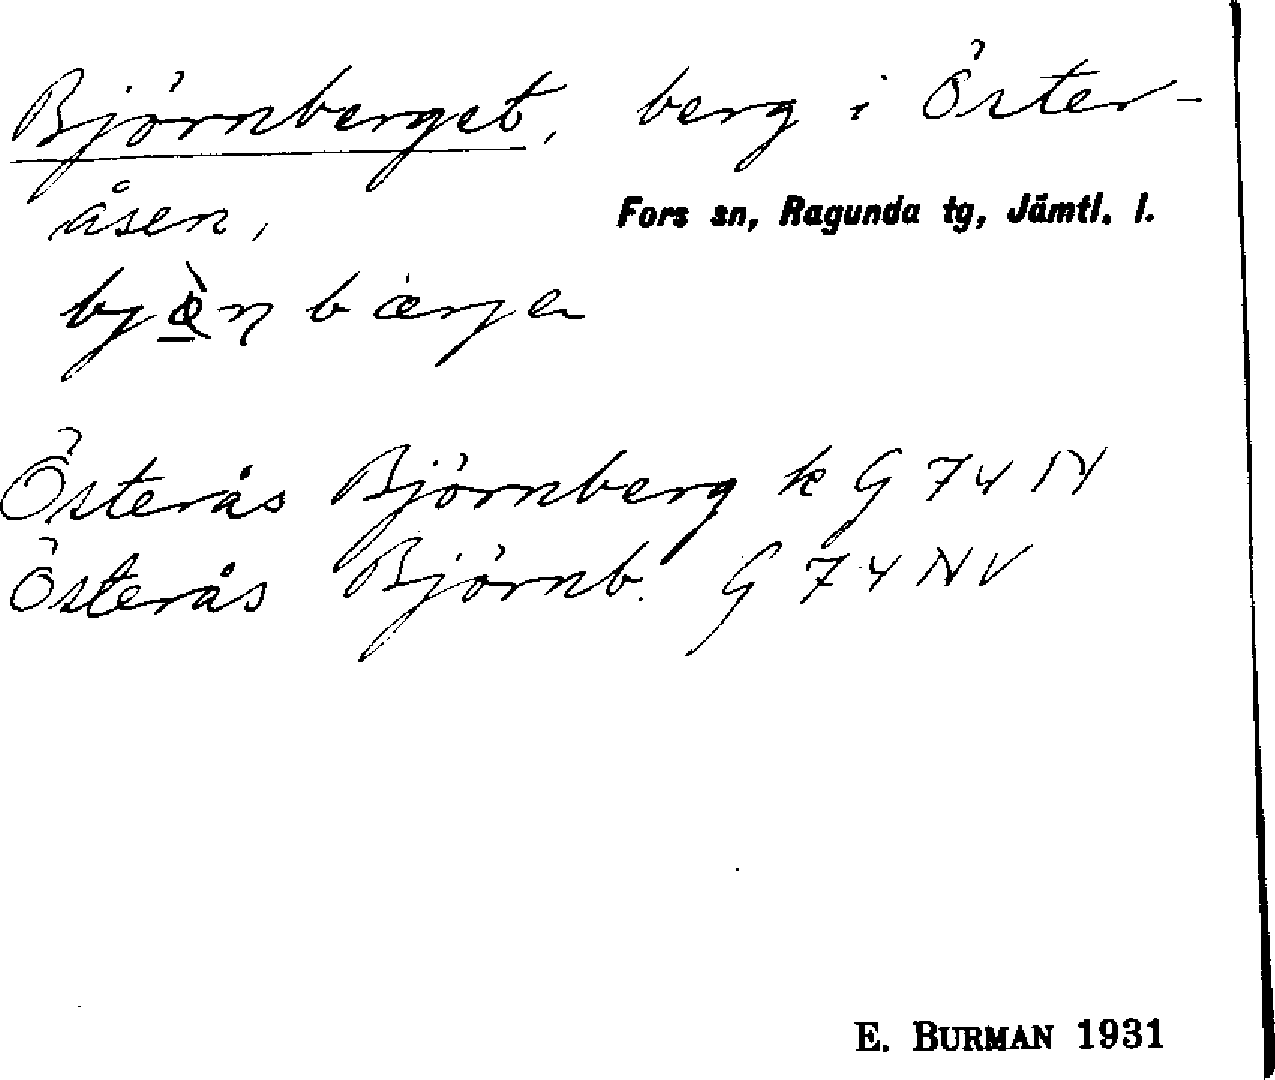 Björnberget, berg i Öster-
åsen,
Fors sn, Ragunda tg, Jämtl. l.
Österås Björnberg k G 74 N
Österås Björnb. G 74 NV
E. BURMAN 1931